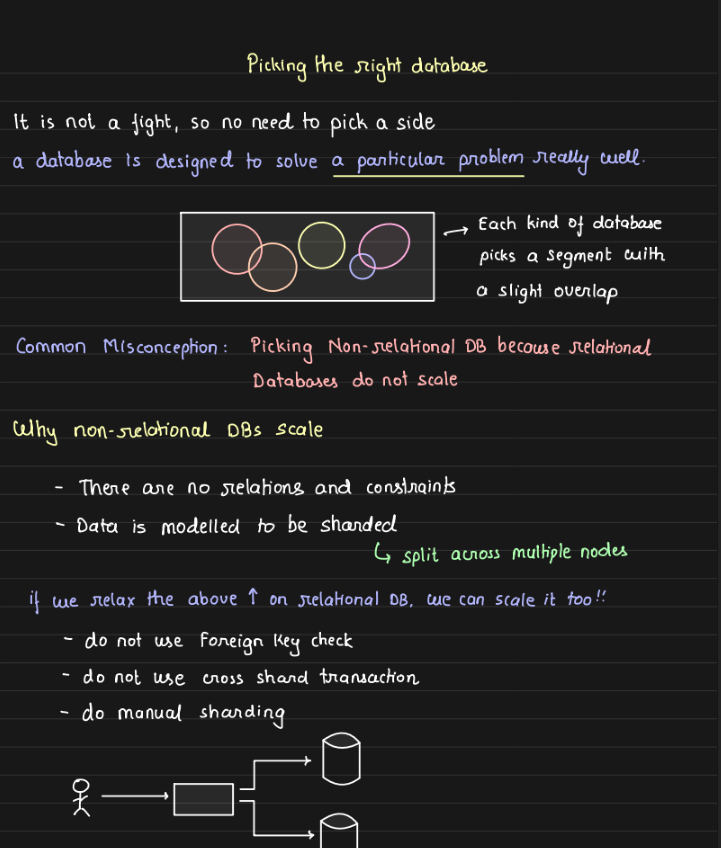 Picking the right database
It is not a fight, so no need to pick a side
a database is designed to solve a particular problem really well.
Each kind of database
picks a segment with
a slight overlap
Common Misconception: Picking Non-relational DB because relational
Databases do not scale
Why non-relational DBs scale
- There are no relations and constraints
- Data is modelled to be sharded
↳ split across multiple nodes
if we relax the above ↑ on relational DB, we can scale it too!!
- do not use Foreign Key check
- do not use cross shard transaction
- do manual sharding